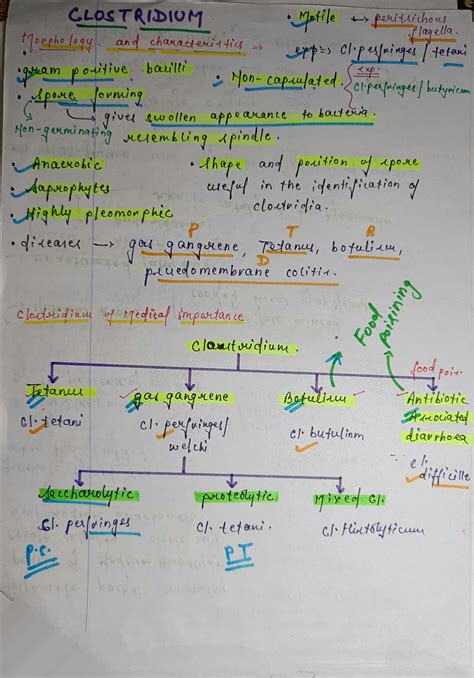 CLOSTRIDIUM
• Motile → peritrichous flagella.
Morphology and characteristics
exp => Cl. perfringes / tetani
• gram positive bacilli
• Non-capsulated
exp:
Cl. perfringes / butyricum
• spore forming
→ gives swollen appearance to bacteria
Non-germinating
resembling spindle.
• Anaerobic
• Saprophytes
• Highly pleomorphic
• Shape and position of spore
useful in the identification of
clostridia.
P T B
• diseases → gas gangrene, Tetanus, botulism,
D
psuedomembrane colitis.
Clostridium of Medical importance
Food poisining
Clostridium.
food pois.
Tetanus
Cl. tetani
gas gangrene
Cl. perfringes/
welchi
Botulism
Cl. butulinm
Antibiotic
Associated
diarrhoea
Cl.
difficille
saccharolytic
Cl. perfringes
P.S.
proteolytic
Cl. tetani.
PT
Mixed Cl.
Cl. Histolyticum